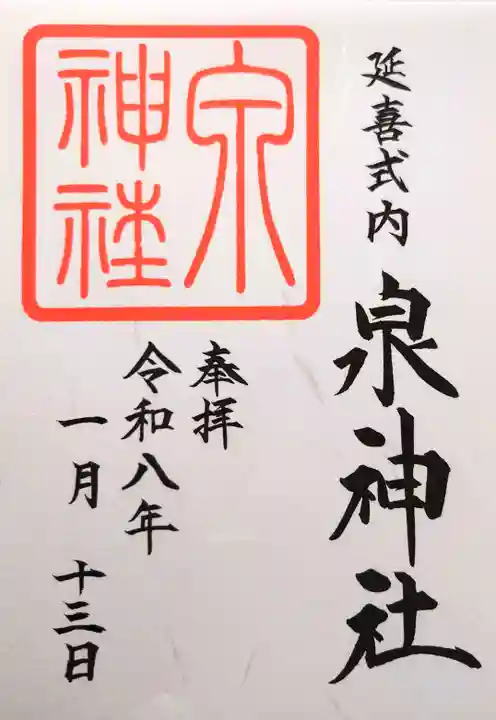 延喜式内
泉神社
奉拝
令和八年
一月 十三日
泉
神社